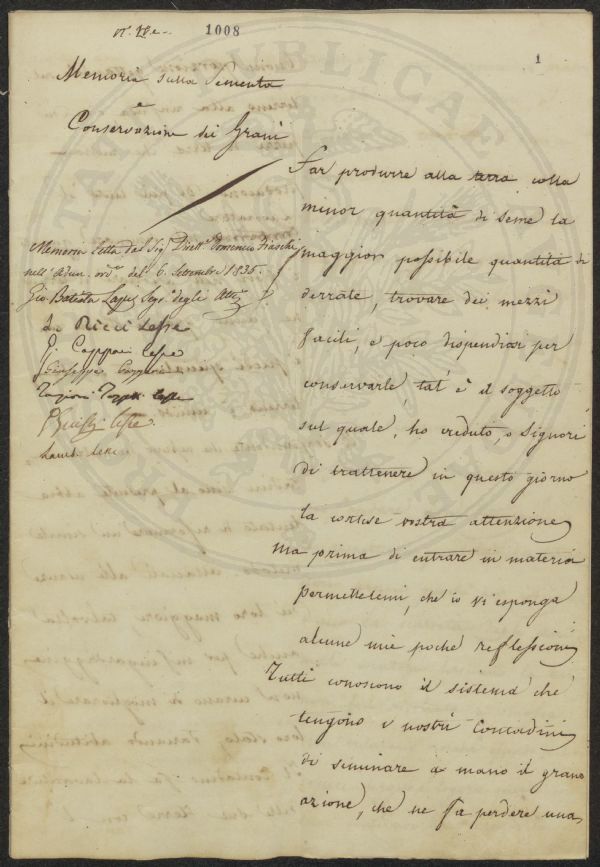 1008
1
Memoria sulla Sementa
e
Conservazione dei Grani
Memoria letta dal Sig. Dirett. Domenico
nell' Adun. ord. del 6. Settembre 1835.
Gio Batista Segr. degli Atti
Ricci Lesse
G. Cappari lesse
Giuseppe
Tozzetti lesse
lesse
Far produrre alla terra colla
minor quantità di seme la
maggior possibile quantità di
derrate, trovare dei mezzi
facili, e poco dispendiosi per
conservarle, tal' è il soggetto
sul quale, ho creduto, o Signori
di trattenere in questo giorno
la cortese vostra attenzione,
ma prima di entrare in materia
permettetemi, che io vi esponga
alcune mie poche reflessioni,
Tutti conoscono il sistema che
tengono i nostri Contadini
di seminare a mano il grano
azione, che ne fa perdere una